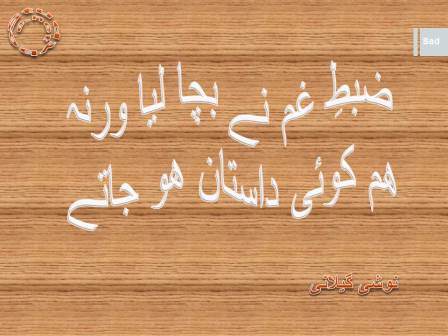 Sad
ضبطِ غم نے بچا لیا ورنہ
ہم کوئی داستان ہو جاتے
نوشی گیلانی